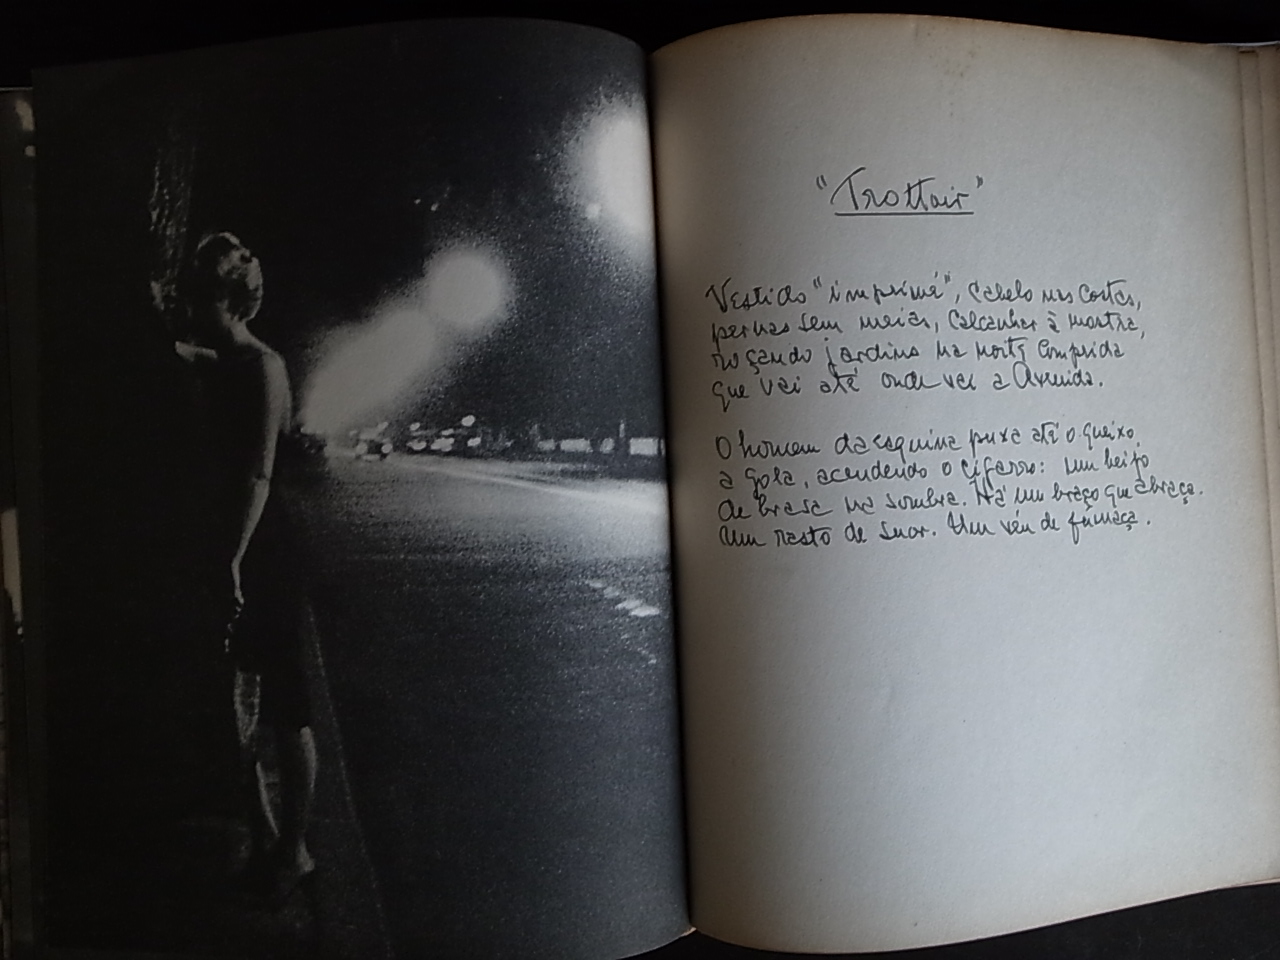 "Trottoir"
Vestido "imprimé", cabelo nas costas,
pernas sem meias, calcanhar à mostra,
roçando jardins na noite comprida
que vai até onde vai a Avenida.
O homem da esquina puxa até o queixo
a gola, acendendo o cigarro: um beijo
de brasa na sombra. Há um braço que abraça.
Um resto de suor. Um véu de fumaça.